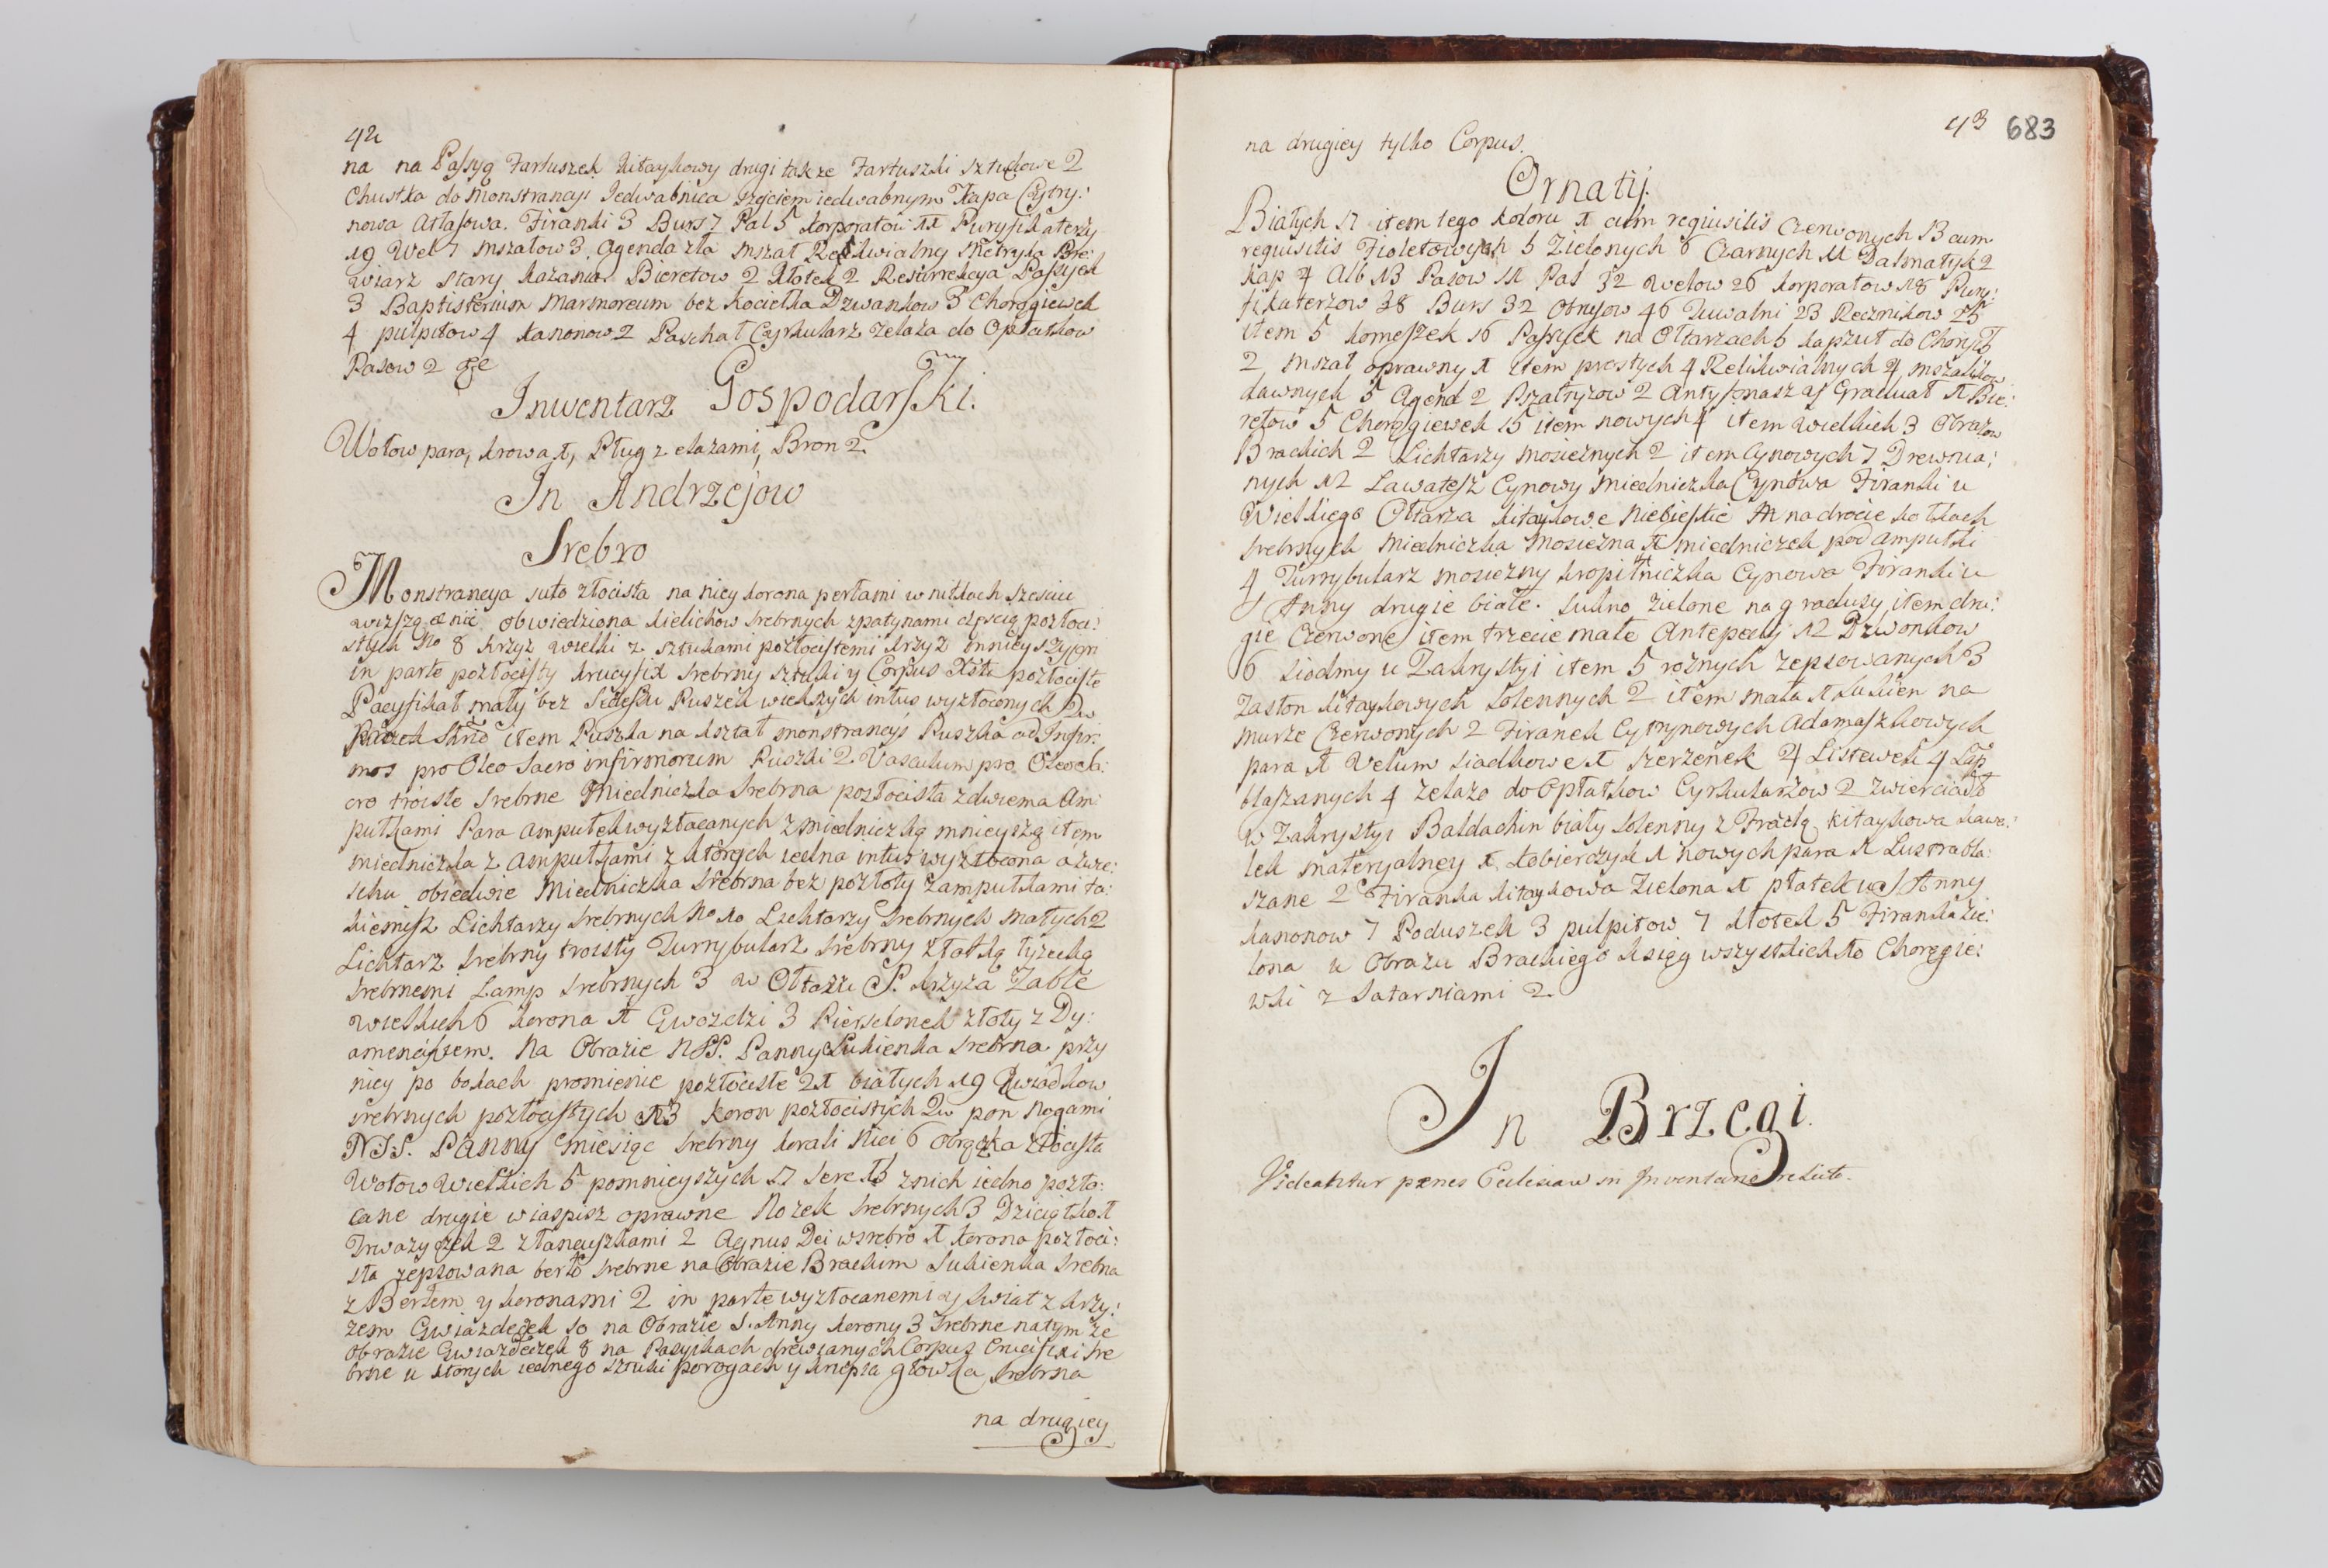 42
na na Passyą Fartuszek kitaykowy drugi takze Fartuszki sztuckowe 2
Chustka do Monstrancyi Jedwabnica szyciem iedwabnym Kapa Cytry:
nowa Atłasowa. Firanki 3 Burs 7 Pal 5 korporałow 11 Puryfikaterzy
19 Wel 7 Mszałow 3 Agenda zła Mszał Rekwialny Metryka Bre:
wiarz stary kazania. Bieretow 2 Kłotek 2 Resurrekcya Passyek
3 Baptisterium Marmoreum bez kociełka Dzwankow 3 Chorągiewek
4 pulpitow 4 kanonow 2 Paschał Cyrkularz zelaza do Opłatkow
Pasow 2 etc
Inwentarz Gospodarski.
Wołow para, krowa 1, Pług z elazami, Bron 2.
In Andrzejow
Srebro
Monstrancya suto złocista na niey korona perłami w nitkach szesciu
wizszą nic obwiedziona kielichow srebrnych z patynami częscią pozłoci:
stych No 8 krzyz wielki z sztukami pozłocistemi krzyz mnieyszy
in parte pozłocisty krucyfix srebrny sztuki y Corpus Xsti pozłociste
Pacyfikał mały bez Puszek wiekszych intus wyztoconych 2
item Puszka na kształ monstrancyi Puszka ad Infir:
mos pro Oleo Sacro infirmorum Puszki 2. Vasculum pro Oleo
cro troiste srebrne Miedniczka srebrna pozłocista z dwiema Am:
pułkami Para ampułek wyzłacanych z miedniczką mnieyszą item
miedniczka z ampułkami z ktorych iedna intus wyzłocona
obiedwie Miedniczka srebrna bez pozłoty z ampułkami ta:
kiemisz Lichtarzy srebrnych No 10 Lichtarzy srebrnych małych 2
Lichtarz srebrny troisty Turrybularz srebrny z łotką łyzecką
srebrnemi Lamp srebrnych 3 w Ołtazu S. krzyza Zable
wielkich 6 korona 1 Gwozdzi 3 Piersclonek złoty z Dy:
amencikiem. Na Obrazie NSS. Panny Sukienka srebrna przy
niey po bokach promienie pozłociste 21 białych 19 Kwiadkow
srebrnych pozłocistych 13 koron pozłocistych 2 pon Nogami
NSS. Panny miesiąc srebrny korali Nici 6 obrączka złocista
Wotow wielkich 5 pomnieyszych 17 serc z nich iedno pozło:
cane drugie w iaspisz oprawne Nozek srebrnych 3 Dzieciątko 1
2 z łancuszkami 2 Agnus Dei w srebro 1 korona pozłoci:
sta zepsowana berło srebrne na Obrazie Brackim Sukienka srebna
z Berłem y koronami 2 in parte wyzłocanemi y swiat z krzy:
zem Gwiazdeczek 10 na Obrazie S. Anny korony 3 Srebrne na tym ze
obrazie Gwiazdeczek 8 na Pasyikach drewianych Corpus Crucifixi sre
brne u ktorych iednego sztuki porogach y knepia głowka srebrna
na drugiey
43 683
na drugiey tylko Corpus.
Ornatij.
Białych 17 item tego koloru 1 cum requisitis Czerwonych 13 cum
requisitis Fioletowych 5 Zielonych 6 Czarnych 11 Dalmatyk 2
Kap 4 Alb 13 Pasow 11 Pal 32 Welow 26 korporałow 18 Pury:
fikaterzow 38 Burs 32 Obrusow 46 Tuwalni 23 Ręcznikow 25
item 5 komeszek 16 Passyiek na Ołtarzach 6 kapzut do Chorych
2 Mszał oprawny 1 item prostych 4 Relikwialnych 4 mszałikow
dawnych 5 Agend 2 Psałtyzow 2 Antyfonasz 1 Graduał 1 Bie:
retow 5 Chorągiewek 15 item nowych 4 item wielkich 3 Obrazow
Brackich 2 Lichtarzy mosieznych 2 item Cynowych 7 Drewnia:
nych 12 Lawatesz Cynowy miedniczka Cynowa Firanki u
Wielkiego Ołtarza kitaykowe niebieskie na drocie kołkach
srebrnych miedniczka mosiezna 1 miedniczek pod ampułki
4 Turrybularz mosiezny kropilniczka Cynowa Firanki u
S Anny drugie białe. sukno zielone na gradusy item dru:
gie Czerwone item trzecie małe Antepedy 12 Dzwonkow
6 siodmy u Zakrystyi item 5 roznych zepsowanych 3
zaston kitaykowych solennych 2 item mała 1 sukien na
murze Czerwonych 2 Firanek Cytrynowych Adamaszkowych
para 1 Velum siadkowe 1 Szerzenek 4 Listewek 4 Lap
błaszanych 4 zelazo do Opłatkow Cyrkularzow 2 zwierciadł
w Zakrystyi Baldachin biały solenny z Frędlą kitaykowa kawa:
lek materyalney 1 kobierczyk 1 nowych para 1 Lustra bła:
szane 2 Firanka kitaykowa Zielona 1 płatek u S Anny
kanonow 7 Poduszek 3 pulpitow 7 kłotek 5 Firanka zie:
lona u Obrazu Brackiego ksiąg wszystkich 10 Choręgie:
wki z Latarniami 2.
In Brzegi.
Videantur penes Eclesiam in Inventario